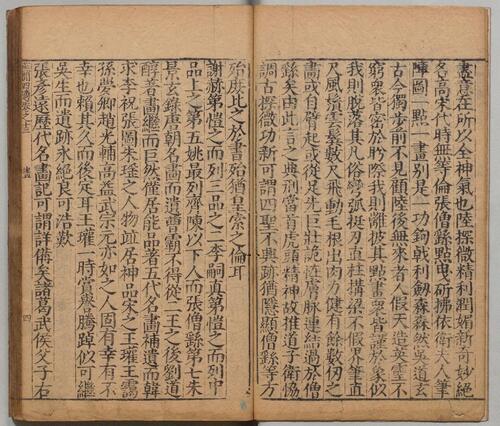 盡意在所以全神氣也陸探微精利潤媚新可妙絕
名高宋代時無等倫張僧繇點曳斫拂依衛夫人筆
陣圖一點一畫別是一功鉤戟利劒森森然吳道玄
古今獨步前不見顧陸後無來者人假天造英靈不
窮衆皆密於盻際我則離披其點畫衆皆謹於象似
我則脫落其凡俗彎弧挺刃直柱搆梁不假界筆直
尺虬鬚雲鬢數尺飛動毛根出肉力健有餘數仞之
畫或自臂起或從足先巨壯詭怪膚脉連結過於僧
繇矣由此言之典刑當首虎頭精神故推道子衛恊
調古探微功新可謂四聖不興跡猶隱顯僧繇等方
殆庶比之於書殆猶皇索之倫耳
謝赫第愷之而列三品之二李嗣真第愷之而列中
品上之第五姚最列齊陳以下人而張僧繇第七朱
景玄錄唐朝名畫而遺曹霸不得從二王之後劉道
醇著畫繼而巨然僅居能品著五代名畫補遺而韓
求李祝張圖朱瑤之人物竝居神品宋之王瓘王靄
孫夢卿趙光輔高益武宗元亦如之人固有幸有不
幸也賴其久而後定耳王瓘一時當譽騰踔似可繼
吳生而遺跡永絕良可浩歎
張彥遠歷代名畫記可謂詳僃矣諸葛武侯父子右
四